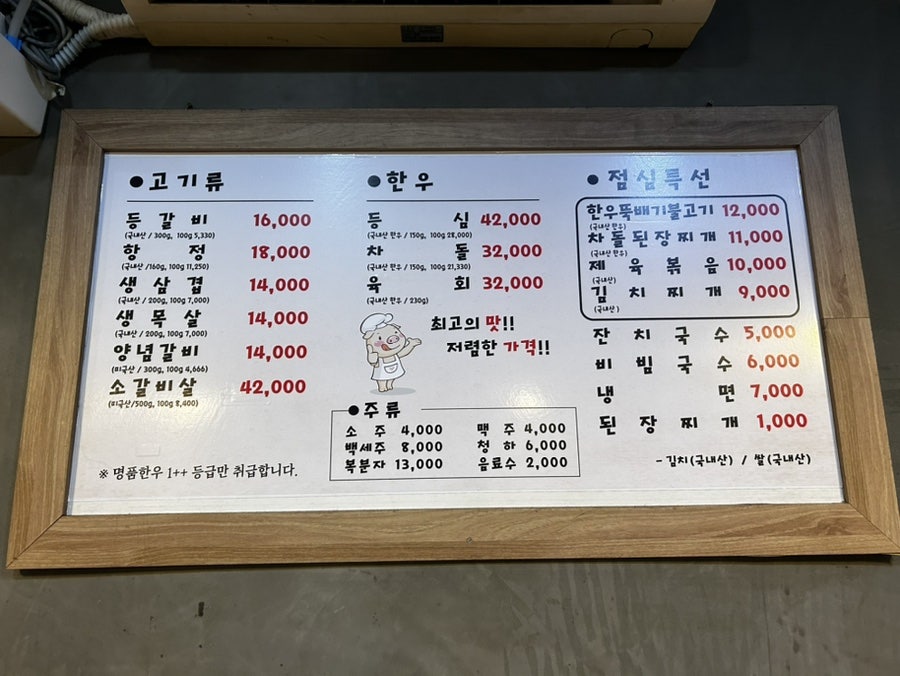 ●고기류
등갈비 16,000
(국내산 / 300g, 100g 5,330)
항정 18,000
(국내산 /160g, 100g 11,250)
생삼겹 14,000
(국내산 / 200g, 100g 7,000)
생목살 14,000
(국내산 / 200g, 100g 7,000)
양념갈비 14,000
(미국산 / 300g, 100g 4,666)
소갈비살 42,000
(미국산/500g, 100g 8,400)
※ 명품한우 1++ 등급만 취급합니다.
●한우
등심 42,000
(국내산 한우 / 150g, 100g 28,000)
차돌 32,000
(국내산 한우 / 150g, 100g 21,330)
육회 32,000
(국내산 한우 / 230g)
최고의 맛!!
저렴한 가격!!
●주류
소주 4,000 맥주 4,000
백세주 8,000 청하 6,000
복분자 13,000 음료수 2,000
● 점심특선
한우뚝배기불고기 12,000
(국내산 한우)
차돌된장찌개 11,000
(국내산 한우)
제육볶음 10,000
(국내산)
김치찌개 9,000
(국내산)
잔치국수 5,000
비빔국수 6,000
냉면 7,000
된장찌개 1,000
-김치(국내산) / 쌀(국내산)